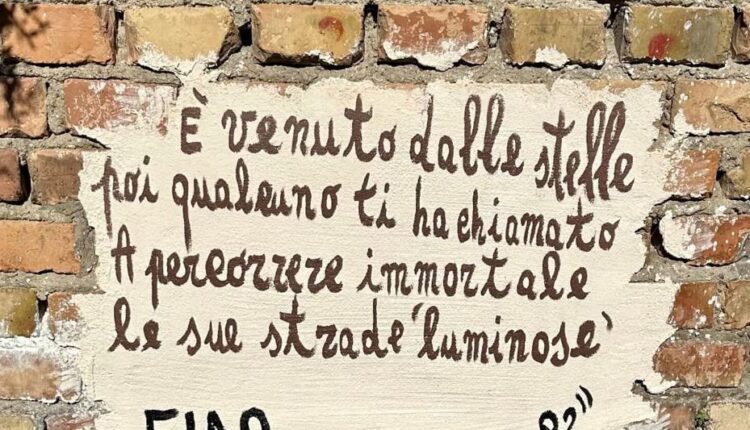 È venuto dalle stelle
poi qualcuno ti ha chiamato
A percorrere immortale
le sue strade "luminose"